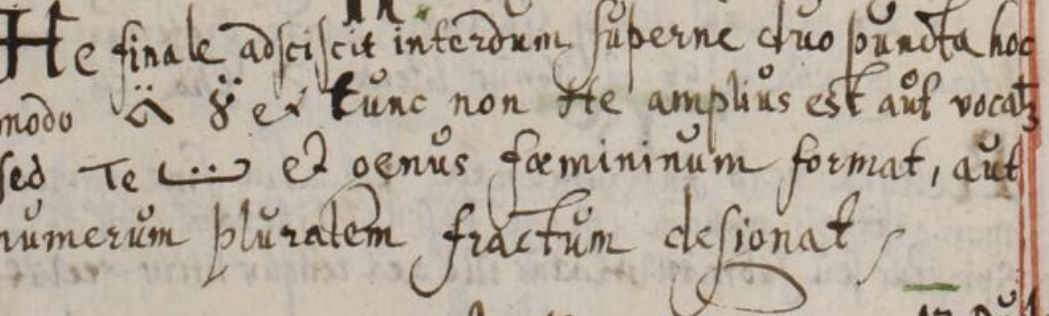 He finale adsciscit interdum superne duo puncta hoc
modo ۃ ة et tunc non He amplius est aut vocatꝫ
sed Te ت et genus fœmininum format, aut
numerum pluralem fractum designat